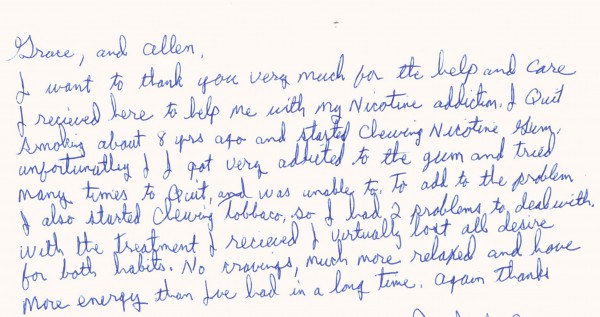 Grace, and Allen,
I want to thank you very much for the help and care
I recieved here to help me with my Nicotine addiction. I Quit
smoking about 8 yrs ago and started Chewing Nicotine Gum.
unfortunatlley I I got very addicted to the gum and tried
many times to Quit, and was unable to. To add to the problem
I also started Chewing tobbaco, so I had 2 problems to deal with.
With the treatment I recieved I virtually lost all desire
for both habits. No cravings, much more relaxed and have
more energy than I've had in a long time. Again thanks